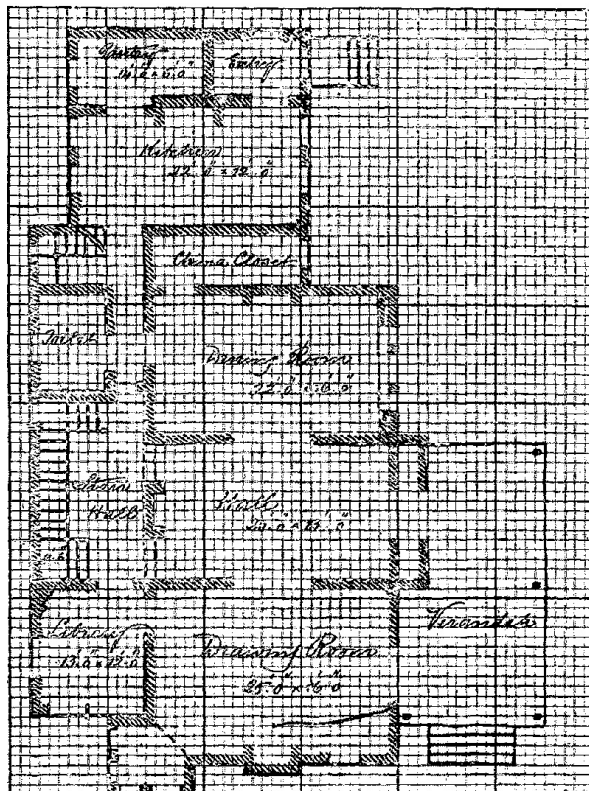 Pantry
Entry
Kitchen
22' 0" x 12' 0"
China Closet
Toilet
Dining Room
22' 0" x 16' 0"
Stair
Hall
Hall
Library
13' 0" x 12' 0"
Drawing Room
25' 0" x 16' 0"
Verandah